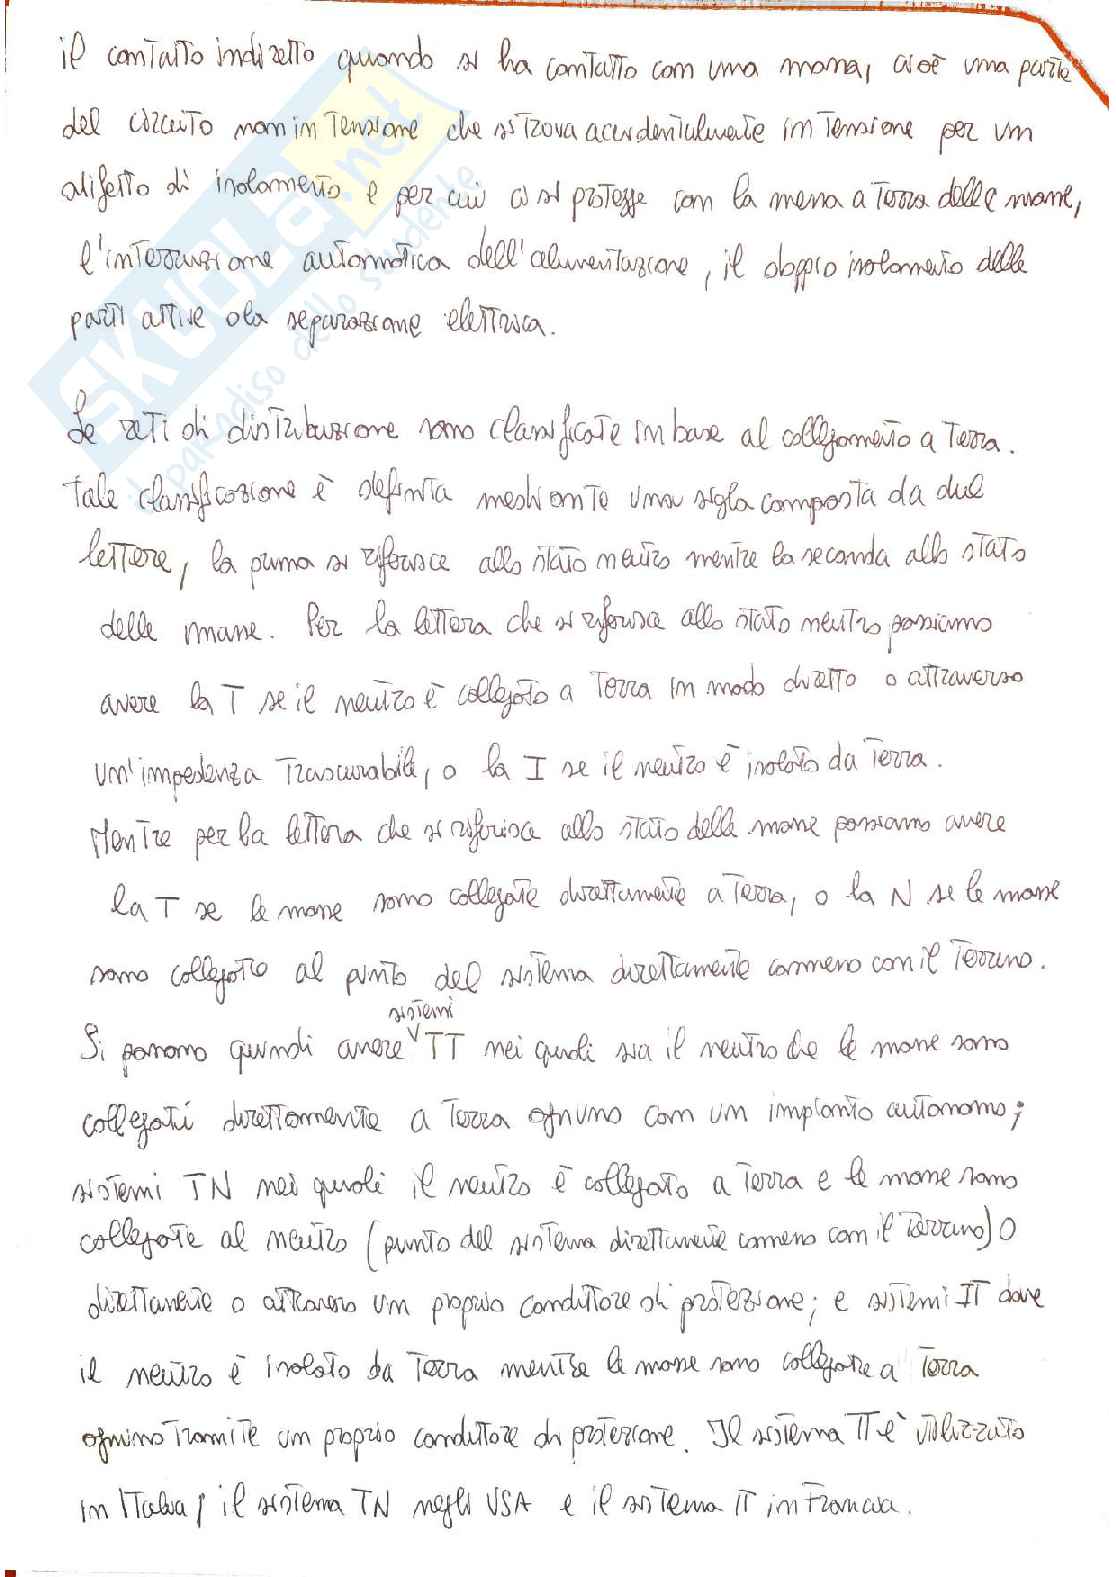 il contatto indiretto quando si ha contatto con una massa, cioè una parte
del circuito non in tensione che si trova accidentalmente in tensione per un
difetto di isolamento e per cui ci si protegge con la messa a terra delle masse,
l'interruzione automatica dell'alimentazione, il doppio isolamento delle
parti attive o la separazione elettrica.
Le reti di distribuzione sono classificate in base al collegamento a terra.
Tale classificazione è definita mediante una sigla composta da due
lettere, la prima si riferisce allo stato neutro mentre la seconda allo stato
delle masse. Per la lettera che si riferisce allo stato neutro possiamo
avere la T se il neutro è collegato a terra in modo diretto o attraverso
un'impedenza trascurabile, o la I se il neutro è isolato da terra.
Mentre per la lettera che si riferisce allo stato delle masse possiamo avere
la T se le masse sono collegate direttamente a terra, o la N se le masse
sono collegate al punto del sistema direttamente connesso con il terreno.
Si possono quindi avere sistemi TT nei quali sia il neutro che le masse sono
collegati direttamente a terra ognuno con un impianto autonomo;
sistemi TN nei quali il neutro è collegato a terra e le masse sono
collegate al neutro (punto del sistema direttamente connesso con il terreno) o
direttamente o attraverso un proprio conduttore di protezione; e sistemi IT dove
il neutro è isolato da terra mentre le masse sono collegate a terra
ognuno tramite un proprio conduttore di protezione. Il sistema TT è utilizzato
in Italia, il sistema TN negli USA e il sistema IT in Francia.
SKUOLA.net
il paradiso dello studente